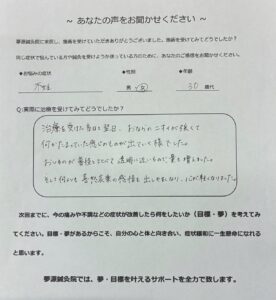 ～ あなたの声をお聞かせください ～
夢源鍼灸院に来院し、施術を受けていただきありがとうございました。施術を受けてみてどうでしたか？
同じ症状で悩んでいる方や鍼灸を受けようか迷っている方のために、あなたのご感想をお聞かせください。
●お悩みの症状 ●性別 ●年齢
不妊 男 女 30 歳代
Q:実際に治療を受けてみてどうでしたか？
治療を受けた当日と翌日、おならのニオイが強くて
何かたまっていた
ものが出ていく様でした。
おりものが
透明に近いもので、量も増えました。
そして何より喜怒哀楽の感情を出しやすくなり、心が軽くなりました。
次回までに、今の痛みや不調などの症状が改善したら何をしたいか（目標・夢）を考えてみ
てください。目標・夢があるからこそ、自分の心と体と向き合い、症状緩和に一生懸命になれる
と思います。
夢源鍼灸院では、夢・目標を叶えるサポートを全力で致します。